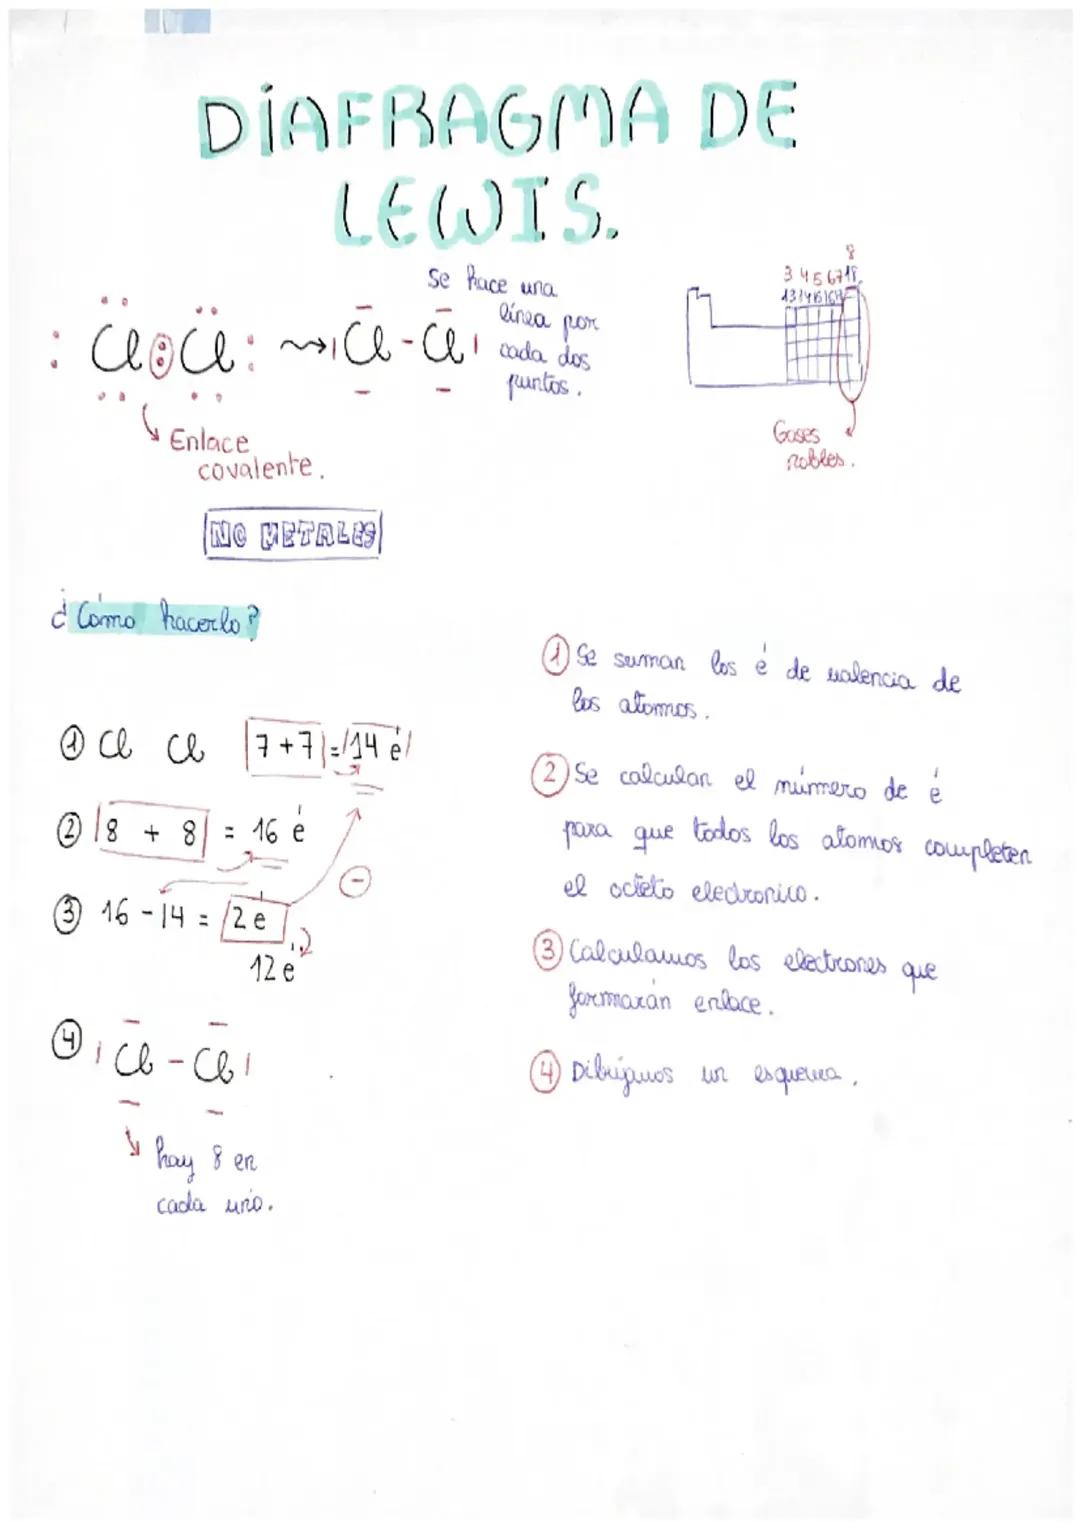 DIAFRAGMA DE
LEWIS.
Cl Cl Cl - Cl
Se hace una
línea por
cada dos
puntos.
8
3 4 5 6 7 18
13 14 15 16 17
Gases
nobles.
Enlace
covalente.
NO METALES
¿Cómo hacerlo?
① Cl Cl 7+7 = 14 é
② 8 + 8 = 16 é
③ 16 - 14 = 2 é
12 é
④ Cl - Cl
hay 8 en
cada uno.
① Se suman los é de valencia de
los atomos.
② Se calculan el número de é
para que todos los atomos completen
el octeto electronico.
③ Calculamos los electrones que
formarán enlace.
④ Dibujamos un esquema.